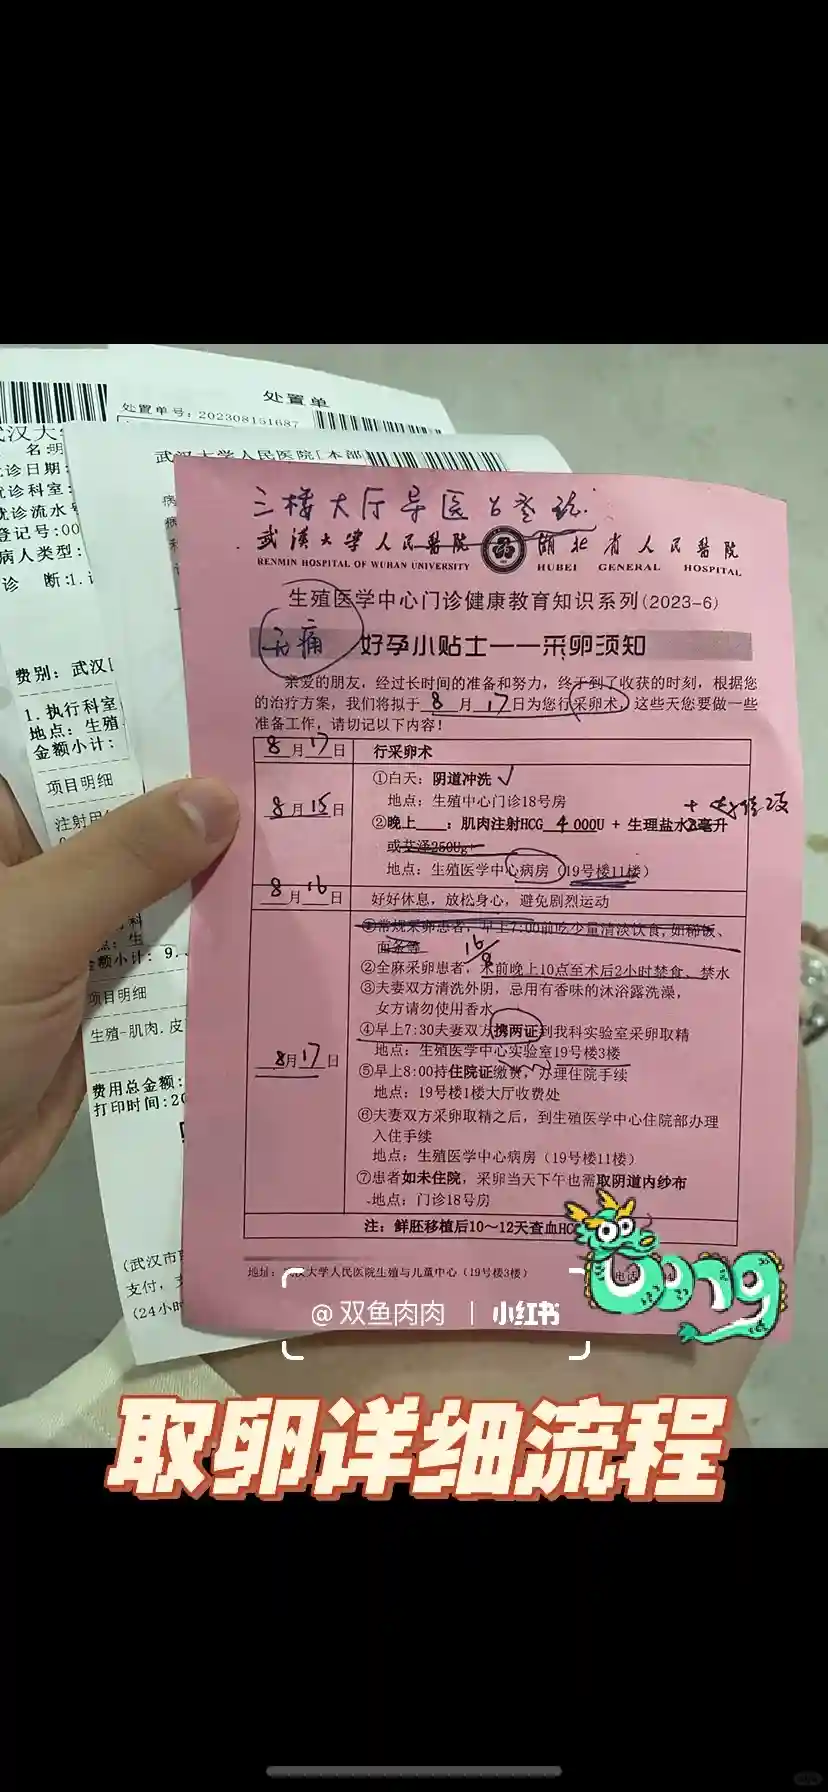 处置单
处置单号：202308151687
武汉大学人民医院[本部
诊日期:
诊科室:
诊流水
登记号:00
病人类型:
诊 断:1.
费别: 武汉
1.执行科室
地点: 生殖
金额小计:
项目明细
金额小计: 9.
项目明细
生殖-肌肉.皮
费用总金额:
打印时间:20
(武汉市
支付,
(24小时
三楼大厅导医台
武漢大學人民醫院 湖北省人民醫院
RENMIN HOSPITAL OF WUHAN UNIVERSITY HUBEI GENERAL HOSPITAL
生殖医学中心门诊健康教育知识系列(2023-6)
无痛 好孕小贴士——采卵须知
亲爱的朋友，经过长时间的准备和努力，终于到了收获的时刻，根据您
的治疗方案，我们将拟于 8 月 17 日为您行采卵术，这些天您要做一些
准备工作，请切记以下内容！
8月17日 行采卵术
①白天：阴道冲洗 √
地点：生殖中心门诊18号房
8月15日
②晚上____：肌肉注射HCG 4000U + 生理盐水2毫升
或艾泽250Ug+
地点：生殖医学中心病房（19号楼11楼）
8月16日 好好休息，放松身心，避免剧烈运动
①常规采卵患者，早上7:00前吃少量清淡饮食,如稀饭、
面条等
16/8
②全麻采卵患者，术前晚上10点至术后2小时禁食、禁水
③夫妻双方清洗外阴，忌用有香味的沐浴露洗澡，
女方请勿使用香水
④早上7:30夫妻双方携两证到我科实验室采卵取精
地点：生殖医学中心实验室19号楼3楼
8月17日
⑤早上8:00持住院证缴费，办理住院手续
地点：19号楼1楼大厅收费处
⑥夫妻双方采卵取精之后，到生殖医学中心住院部办理
入住手续
地点：生殖医学中心病房（19号楼11楼）
⑦患者如未住院，采卵当天下午也需取阴道内纱布
地点：门诊18号房
注：鲜胚移植后10～12天查血HC
地址：武汉大学人民医院生殖与儿童中心（19号楼3楼） 电话
@双鱼肉肉 | 小红书
取卵详细流程